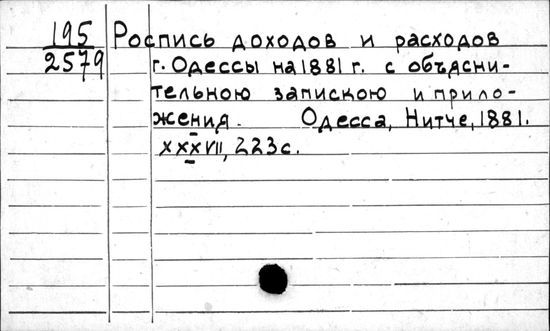 195 Роспись доходов и расходов
2579 г. Одессы на 1881 г. с объясни-
тельною запискою и прило-
жения. Одесса, Нитче, 1881.
XXXVII, 223 с.